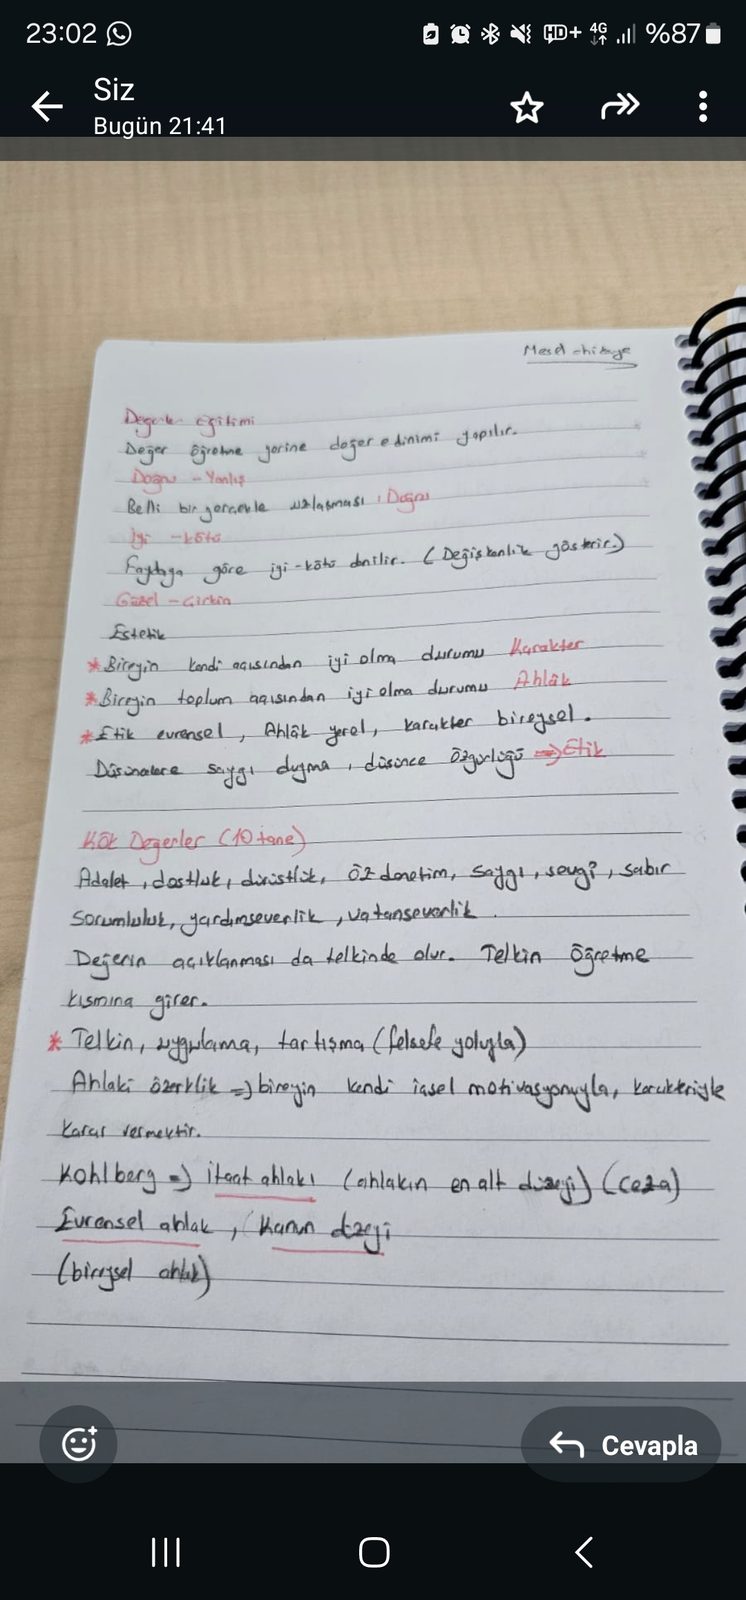 23:02
HD+ 4G %87
Siz
Bugün 21:41
Değerler eğitimi
Değer öğretme yerine değer edinimi yapılır.
Doğru - Yanlış
Belli bir gerçekle uzlaşması : Doğru
İyi - kötü
Faydaya göre iyi-kötü denilir. (Değişkenlik gösterir.)
Güzel - Çirkin
Estetik
* Bireyin kendi açısından iyi olma durumu Karakter
* Bireyin toplum açısından iyi olma durumu Ahlâk
* Etik evrensel, Ahlâk yerel, karakter bireysel.
Düşüncelere saygı duyma, düşünce özgürlüğü => Etik
Kök Değerler (10 tane)
Adalet, dostluk, dürüstlük, öz denetim, saygı, sevgi, sabır
sorumluluk, yardımseverlik, vatanseverlik.
Değerin açıklanması da telkinde olur. Telkin öğretme
kısmına girer.
* Telkin, uygulama, tartışma (felsefe yoluyla)
Ahlaki özerklik => bireyin kendi içsel motivasyonuyla, karakteriyle
karar vermektir.
Kohlberg => itaat ahlakı (ahlakın en alt düzeyi) (ceza)
Evrensel ahlak, (Kanun düzeyi
(bireysel ahlak)
Cevapla